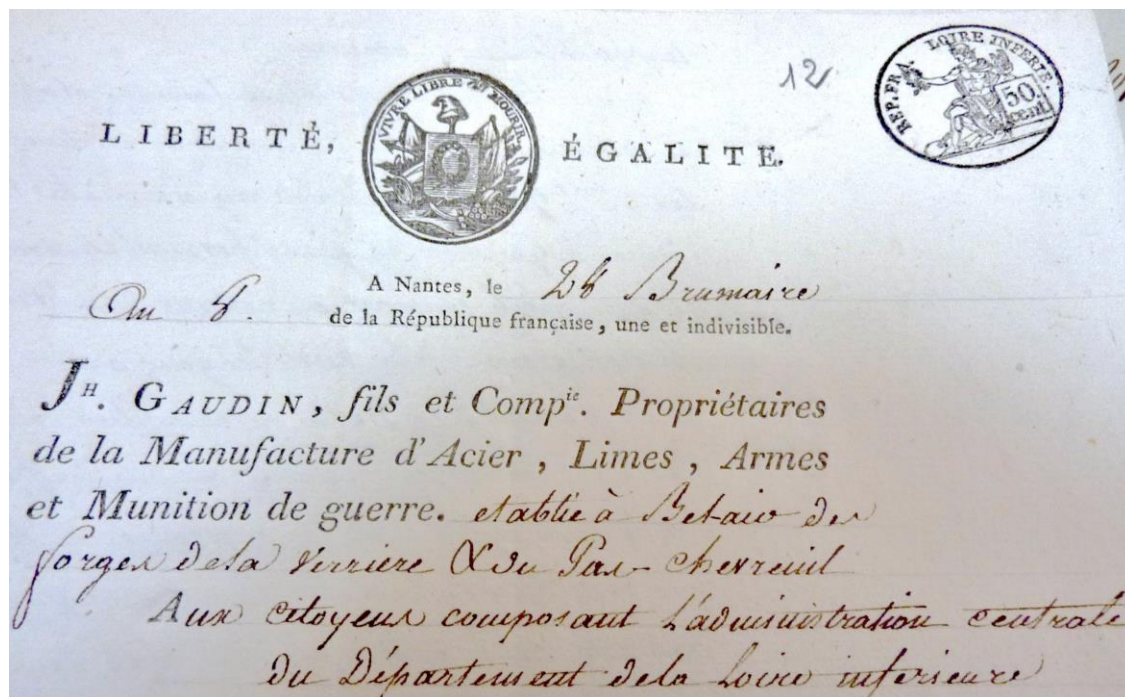 12
REP. FRA. LOIRE INFERIE.
50
cent
VIVRE LIBRE OU MOURIR
LIBERTÉ, ÉGALITÉ.
A Nantes, le 28 Brumaire
An 8. de la République française, une et indivisible.
JH. GAUDIN, fils et Compie. Propriétaires
de la Manufacture d'Acier, Limes, Armes
et Munition de guerre. etablie à des
forges de la Verriere & du Pas-chevreuil
Aux citoyens composant L'administration centrale
du Département de la Loire inferieure